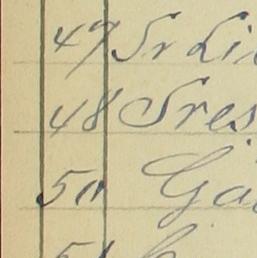 47 Sr Li
48 Sres
50 Ga
51